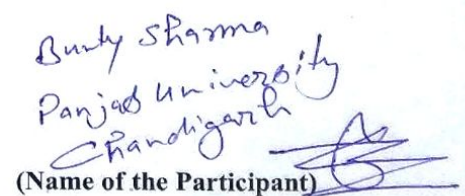 Bunty Sharma
Panjab University
Chandigarh
(Name of the Participant)